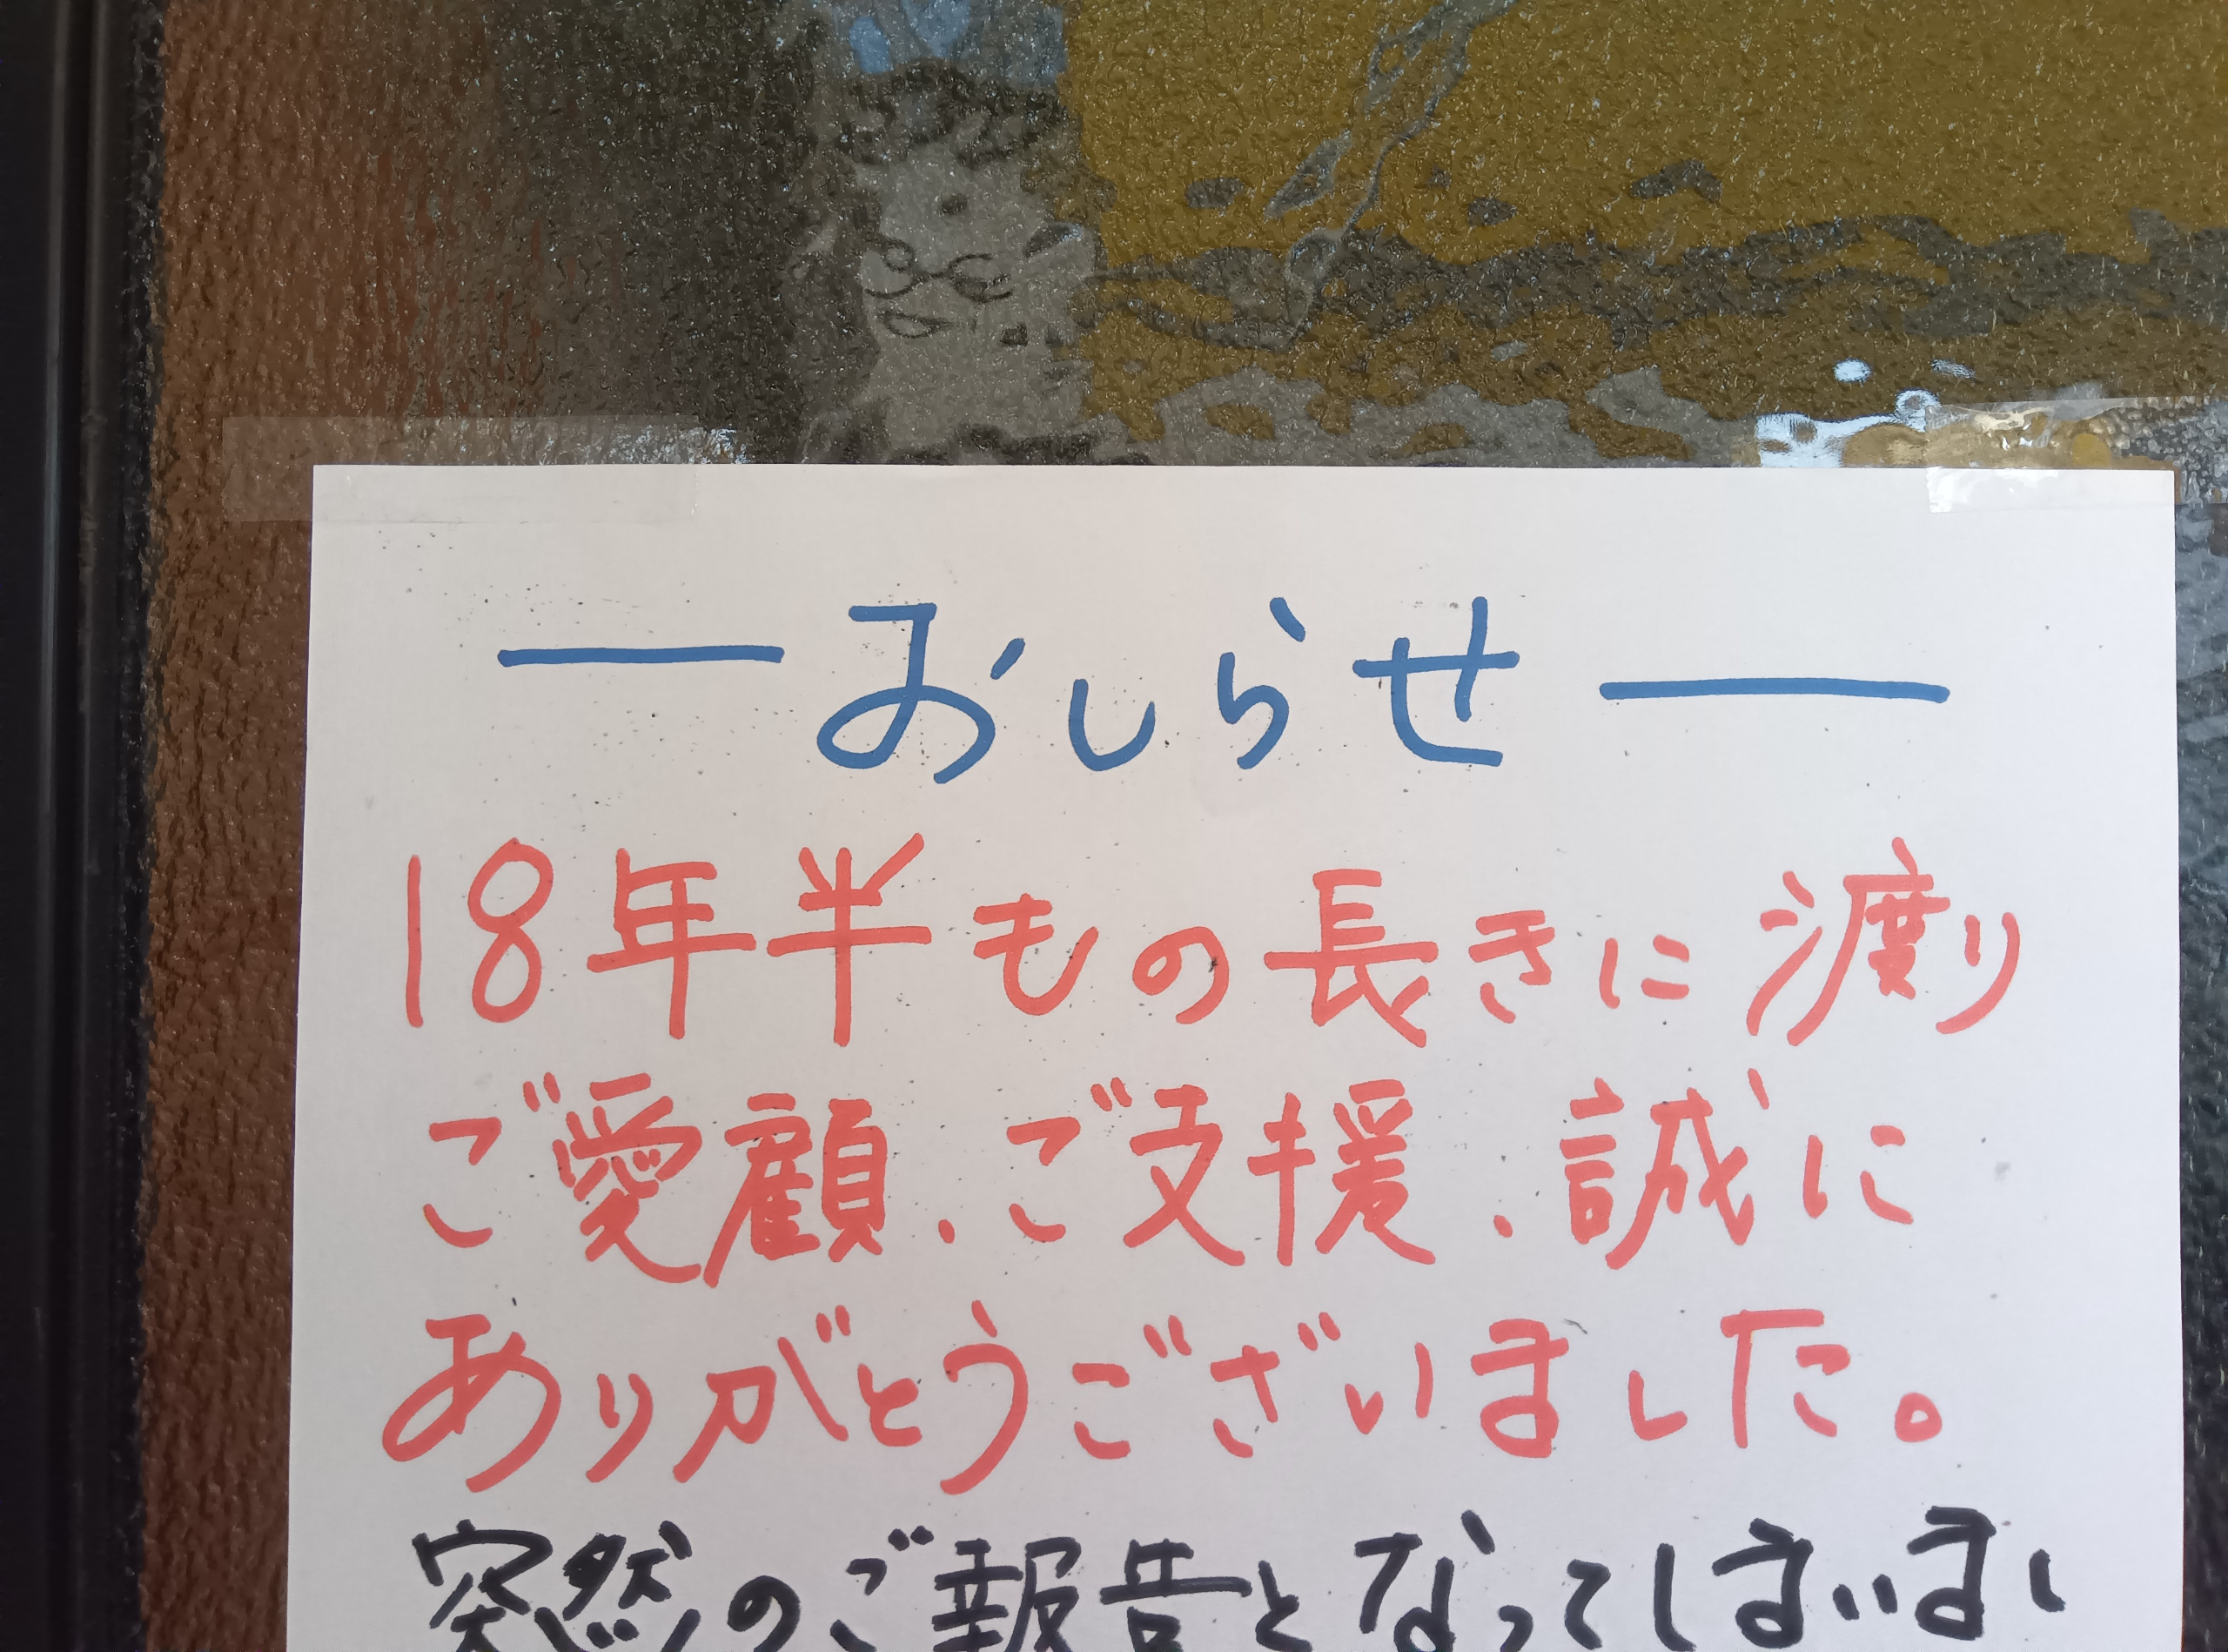 ― おしらせ ―
18年半もの長きに渡り
ご愛顧、ご支援、誠に
ありがとうございました。
突然のご報告となってしまいまし